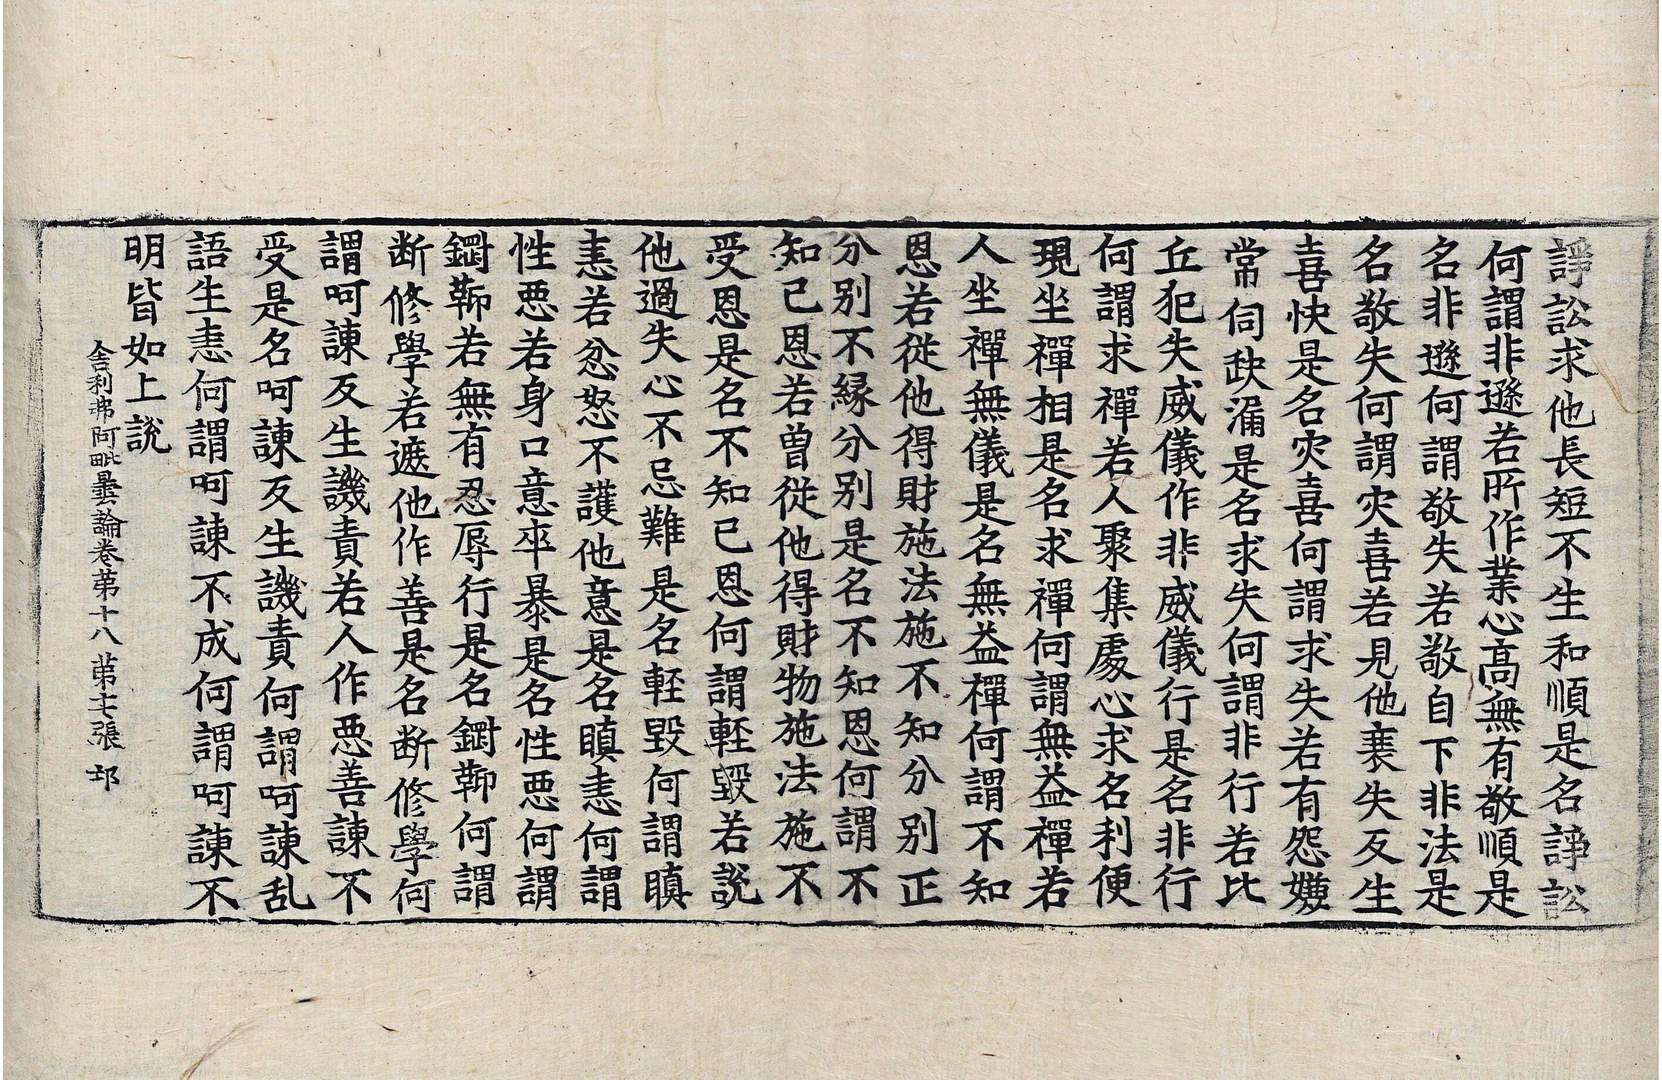 諍訟求他長短不生和順是名諍訟
何謂非遜若所作業心高無有敬順是
名非遜何謂敬失若敬自下非法是
名敬失何謂灾喜若見他衰失反生
喜快是名灾喜何謂求失若有怨嫌
常伺䏐漏是名求失何謂非行若比
丘犯失威儀作非威儀行是名非行
何謂求禪若人聚集處心求名利便
現坐禪相是名求禪何謂無益禪若
人坐禪無儀是名無益禪何謂不知
恩若從他得財施法施不知分別正
分別不縁分別是名不知恩何謂不
知己恩若曾從他得財物施法施不
受恩是名不知己恩何謂輕毀若說
他過失心不忌難是名輕毀何謂瞋
恚若忿怒不護他意是名瞋恚何謂
性悪若身口意卒暴是名性悪何謂
鞕若無有忍辱行是名鞕何謂
断修學若遮他作善是名断修學何
謂呵諫反生譏責若人作悪善諫不
受是名呵諫反生譏責何謂呵諫乱
語生恚何謂呵諫不成何謂呵諫不
明皆如上說
舍利弗阿毗曇論卷第十八 第張 邙